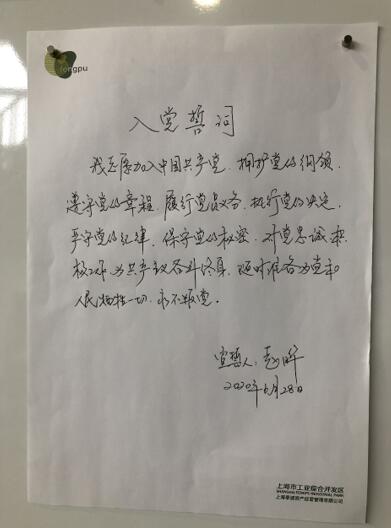 tongpu
入党誓词
我志愿加入中国共产党，拥护党的纲领，
遵守党的章程，履行党员义务，执行党的决定，
严守党的纪律，保守党的秘密，对党忠诚，积
极工作，为共产主义奋斗终身，随时准备为党和
人民牺牲一切，永不叛党。
宣誓人：
2020年6月28日
上海市工业综合开发区
SHANGHAI TONGPU INDUSTRIAL PARK